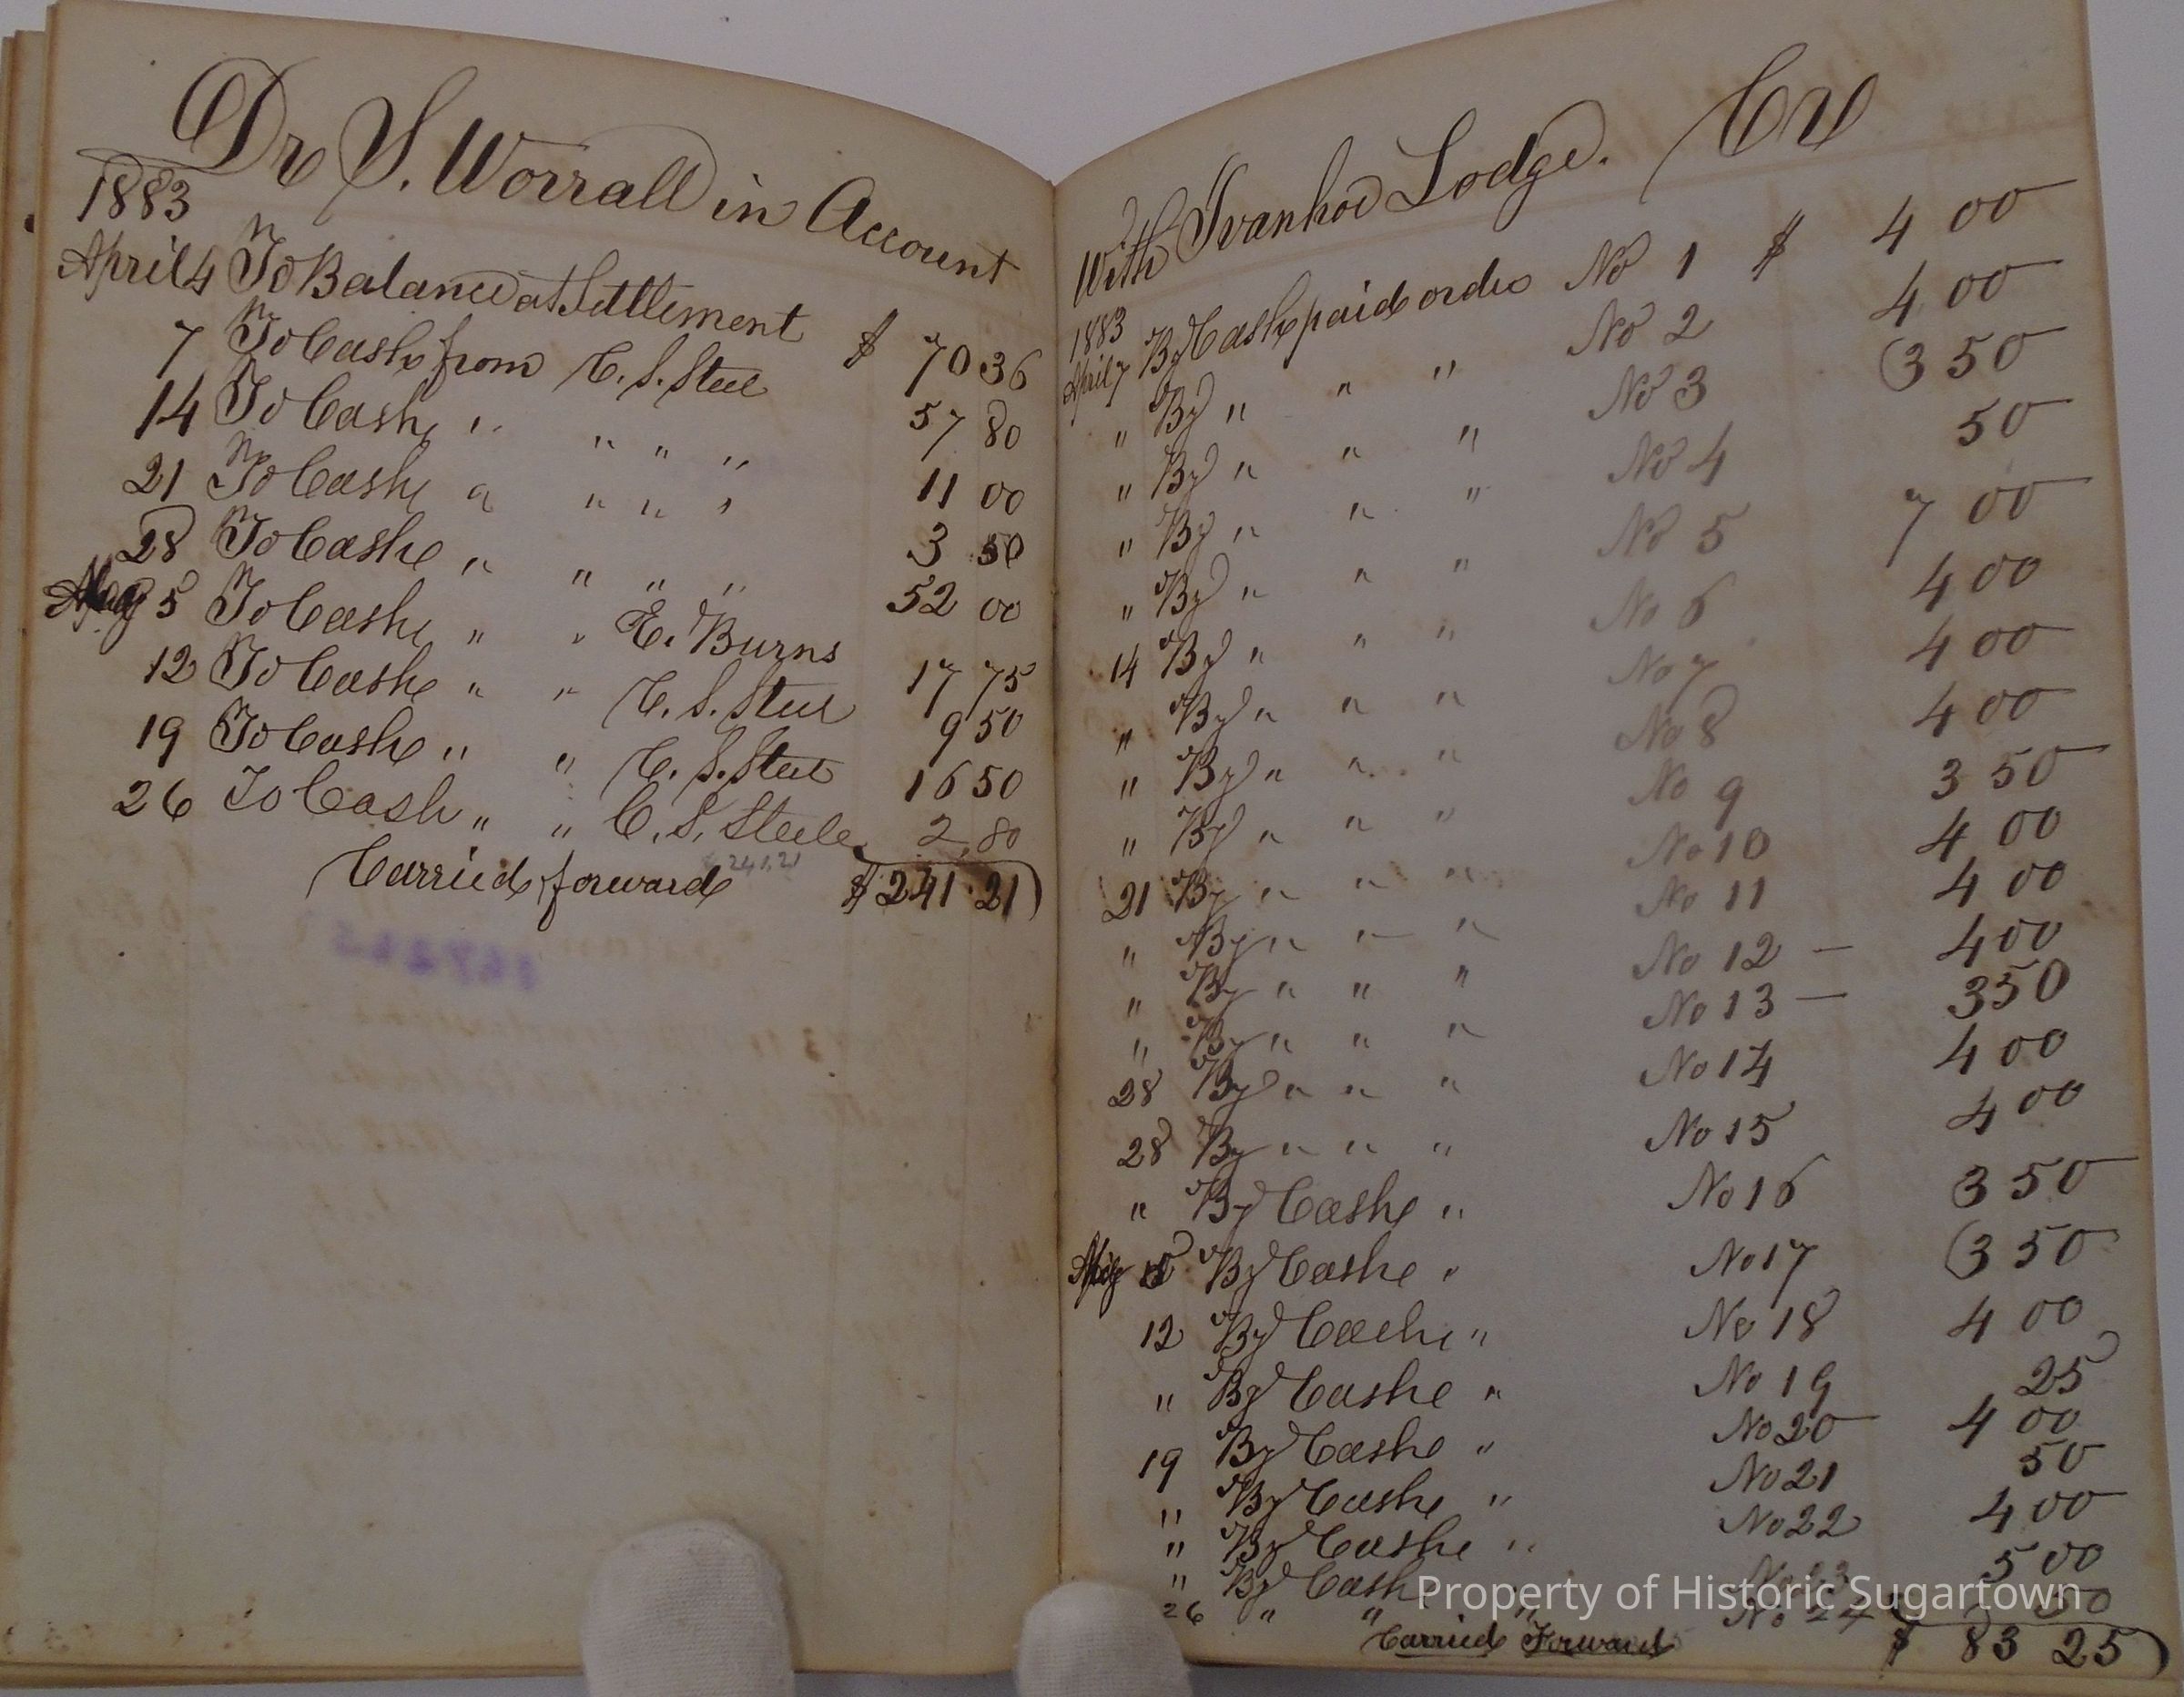 Dr S. Worrall in Account
1883
April 4 To Balance at Settlement $ 70 36
7 To Cash from C. S. Steel 57 80
14 To Cash " " " " 11 00
21 To Cash " " " " 3 50
28 To Cash " " " " 52 00
May 5 To Cash " " E. Burns 17 75
12 To Cash " " C. S. Steel 9 50
19 To Cash " " C. S. Steel 16 50
26 To Cash " " C. S. Steele 2,80
Carried forward 241,21 $ 241.21
With Ivanhoe Lodge. Cr
1883
April 7 By Cash paid order No 1 $ 4 00
" By " " " No 2 4 00
" By " " " No 3 3 50
" By " " " No 4 50
" By " " " No 5 7 00
14 By " " " No 6 4 00
" By " " " No 7 4 00
" By " " " No 8 4 00
" By " " " No 9 3 50
21 By " " " No 10 4 00
" By " " " No 11 4 00
" By " " " No 12 — 4 00
" By " " " No 13 — 3 50
28 By " " " No 14 4 00
28 By " " " No 15 4 00
" By Cash " No 16 3 50
May By Cash " No 17 3 50
12 By Cash " No 18 4 00
" By Cash " No 19 25
19 By Cash " No 20 4 00
" By Cash " No 21 50
" By Cash " No 22 4 00
" By Cash No 23 5 00
26 " " " No 24 50
Carried Forward $ 83 25
Property of Historic Sugartown